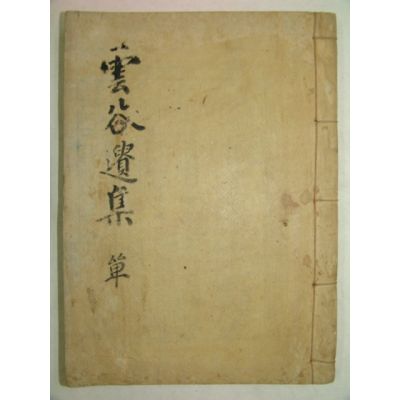 雲谷遺集 單